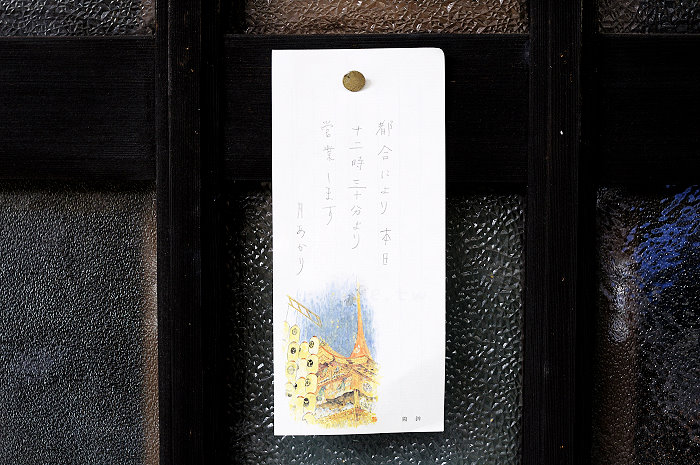 都合により 本日
十二時三十分より
営業します
月あかり